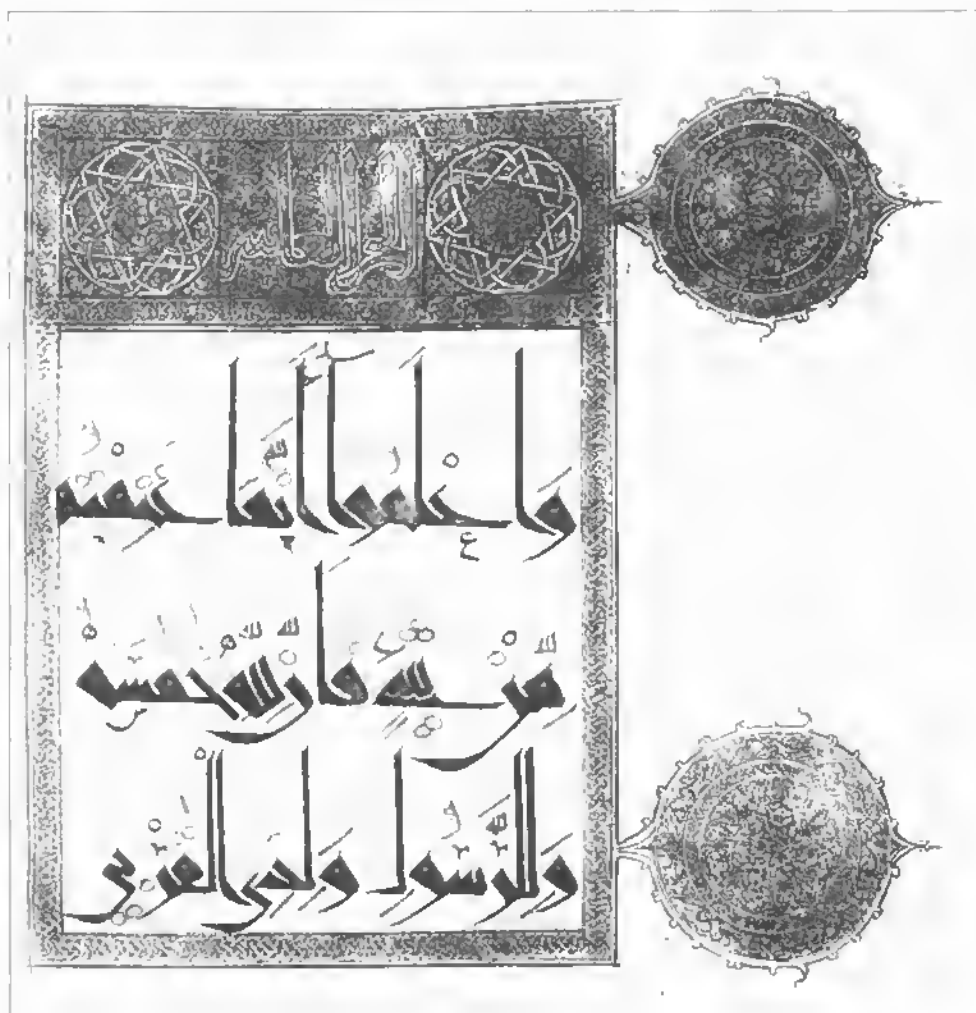 وَاعْلَمُوا أَنَّمَا غَنِمْتُمْ
مِّنْ شَيْءٍ فَأَنَّ لِلَّهِ خُمُسَهُ
وَلِلرَّسُولِ وَلِذِي الْقُرْبَى